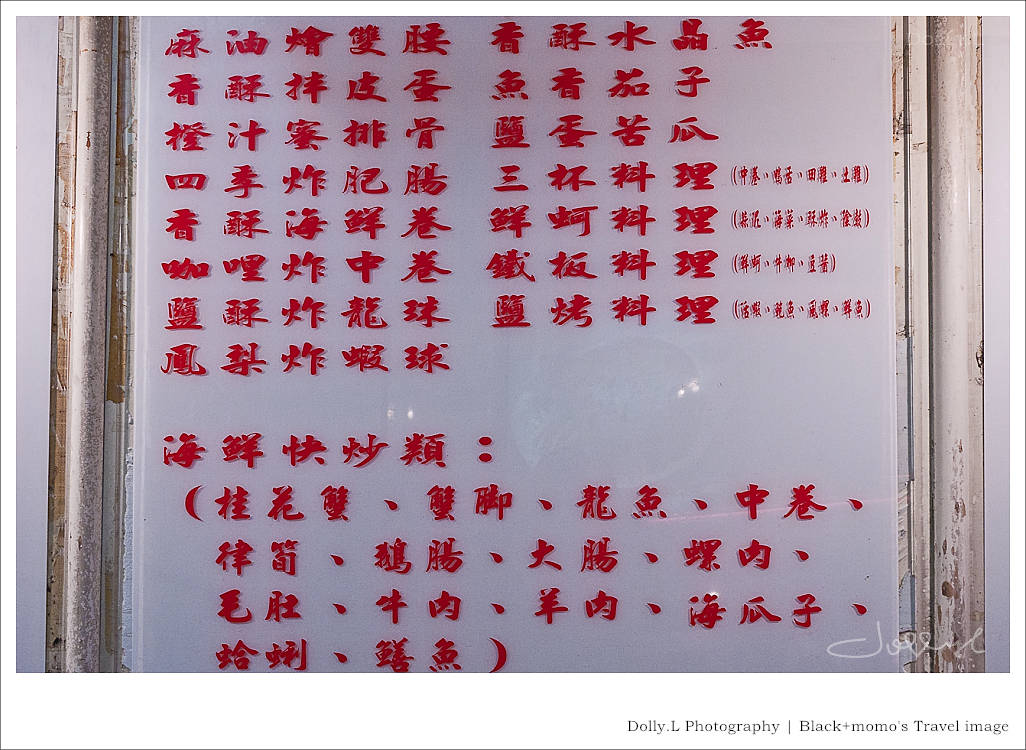 麻油燴雙腰 香酥水晶魚
香酥拌皮蛋 魚香茄子
橙汁蜜排骨 鹽蛋苦瓜
四季炸肥腸 三杯料理(中卷、鴨舌、田雞、土雞)
香酥海鮮卷 鮮蚵料理
咖哩炸中卷 鐵板料理(鮮蚵、牛柳、豆醬)
鹽酥炸龍球 鹽烤料理
鳳梨炸蝦球
海鮮快炒類：
(桂花蟹、蟹脚、龍魚、中卷、
律筍、鵝腸、大腸、螺肉、
毛肚、牛肉、羊肉、海瓜子、
蛤蜊、鱔魚)
Dolly.L Photography | Black+momo's Travel image